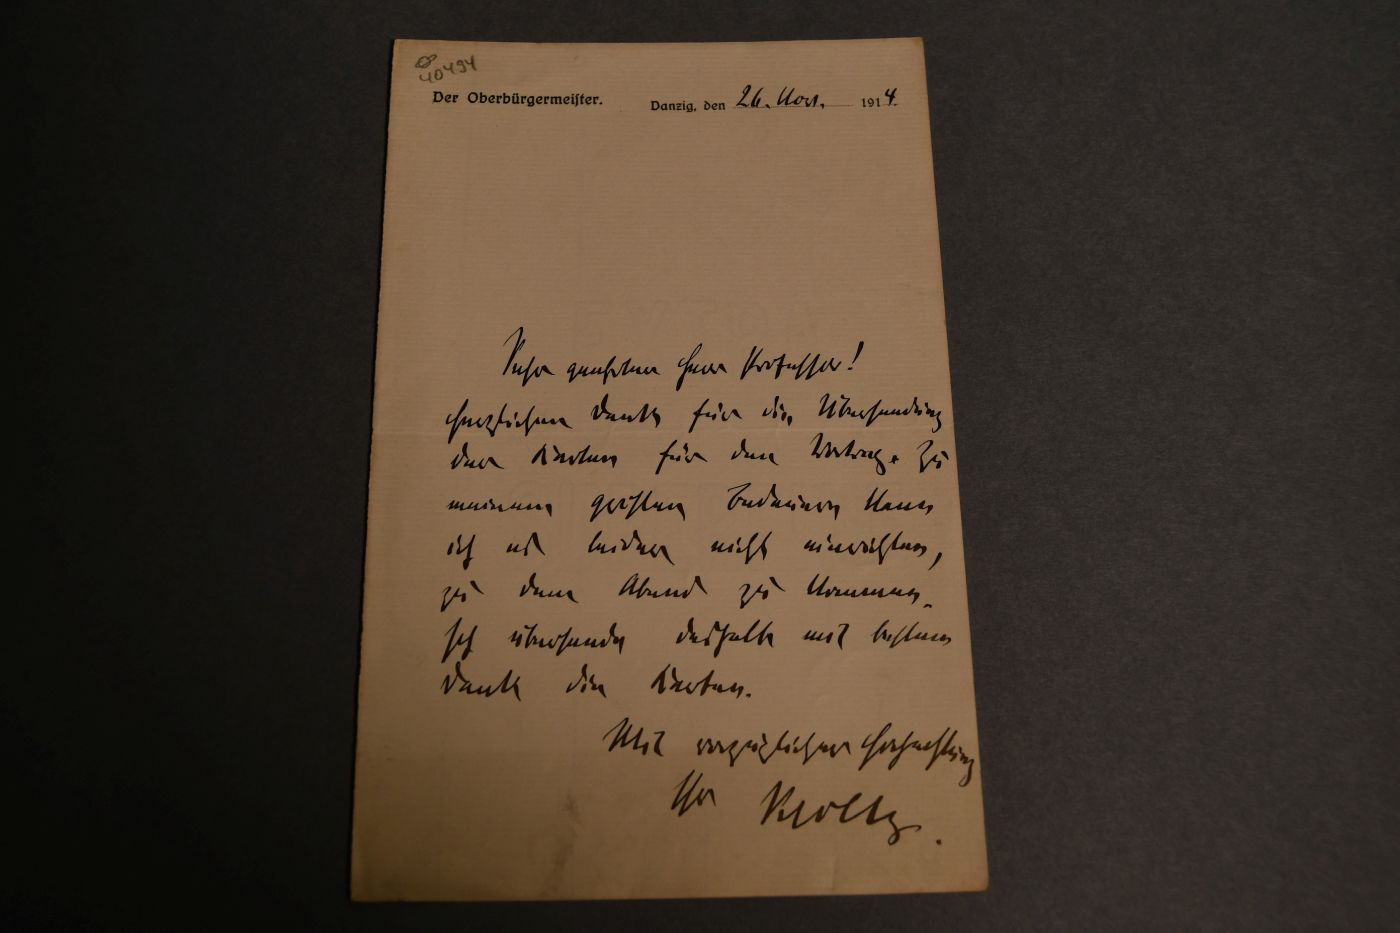 40494
Der Oberbürgermeister.
Danzig, den 26. Nov. 1914.
Sehr geehrter Herr Professor!
Herzlichen Dank für die Übersendung
der Karten für den Vortrag. Zu
meinem größten Bedauern kann
ich es leider nicht einrichten,
zu dem Abend zu kommen.
Ich übersende deshalb mit bestem
Dank die Karten.
Mit vorzüglicher Hochachtung
Ihr Scholtz.